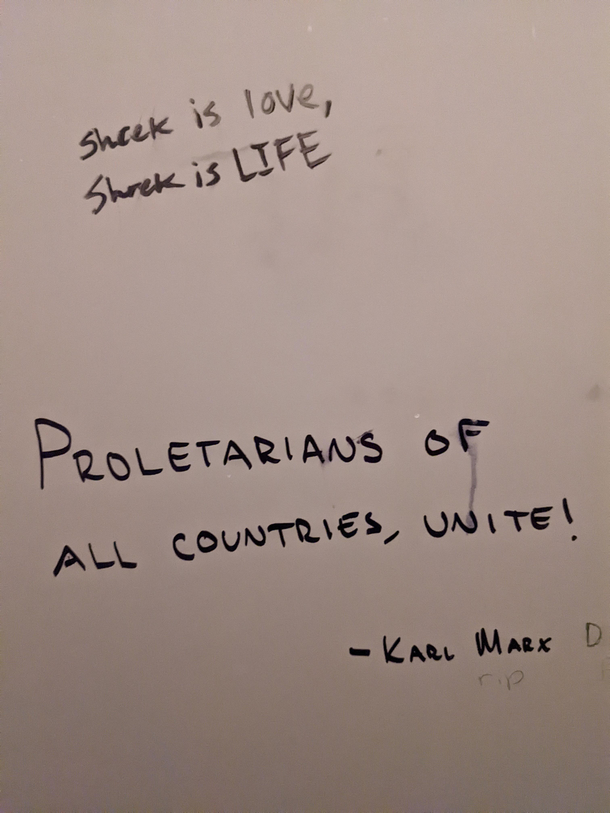 Shrek is love,
Shrek is LIFE
PROLETARIANS OF
ALL COUNTRIES, UNITE!
- KARL MARX D
rip